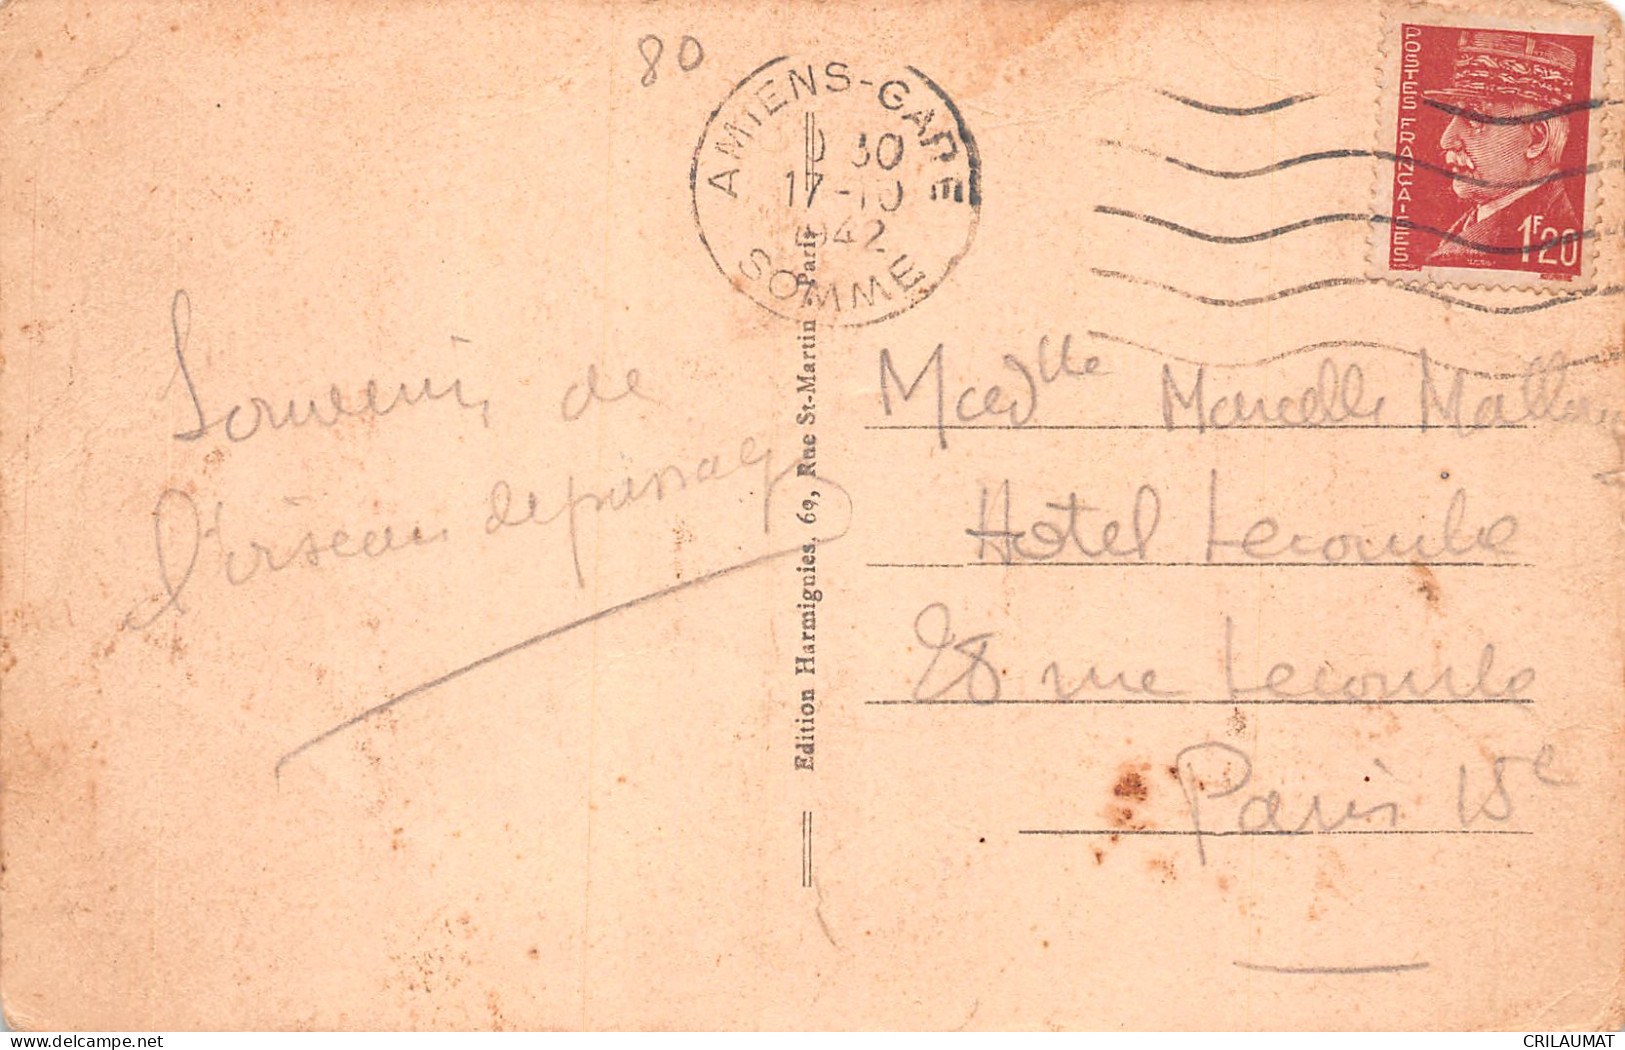 80
AMIENS-GARE
30
17-10
1942
SOMME
POSTES FRANÇAISES
1F20
Souvenir de
l'oiseau de passage
Edition Harmignies, 69, Rue St-Martin Paris
Marcelle
Hotel Lecourbe
28 rue Lecourbe
Paris 15e
delcampe.net
CRILAUMAT